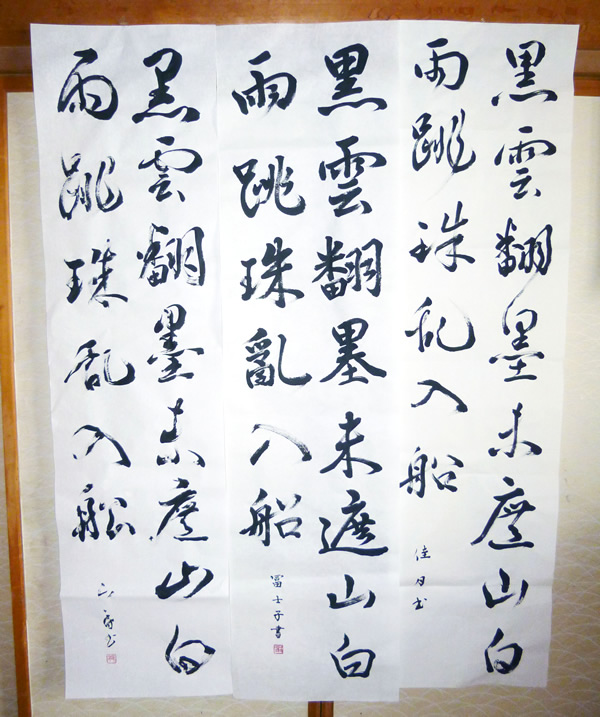 黒雲翻墨未遮山白
雨跳珠乱入船
佳月書
黒雲翻墨未遮山白
雨跳珠亂入船
冨士子書
黒雲翻墨未遮山白
雨跳珠乱入船